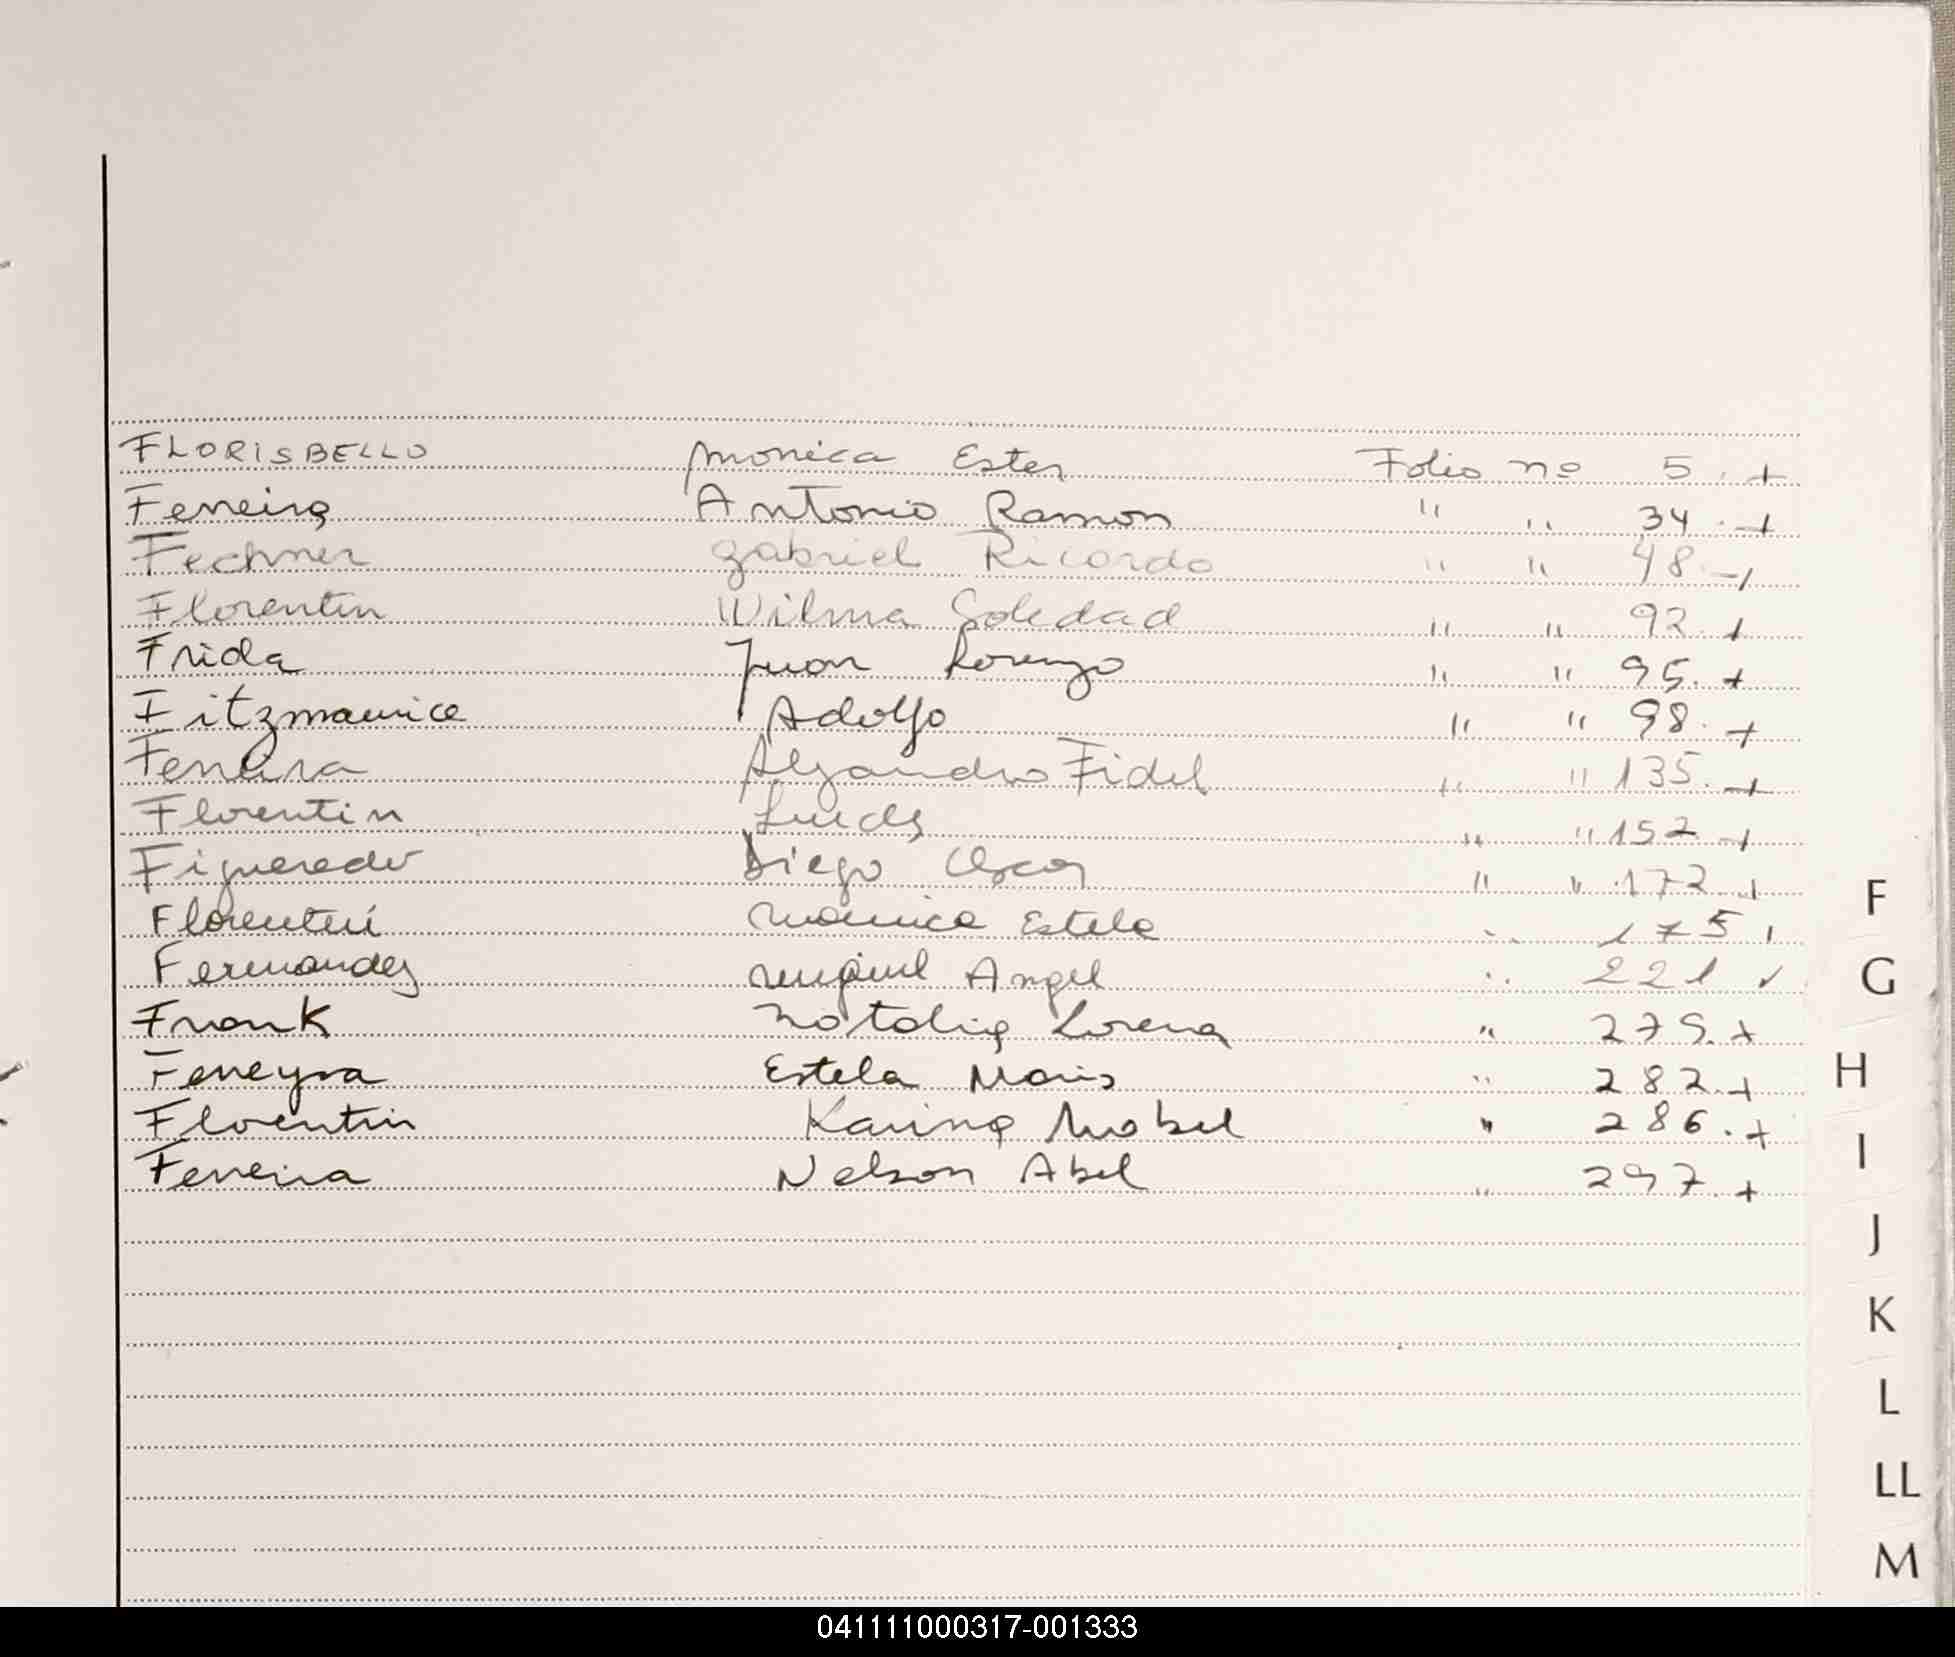 FLORISBELLO Monica Ester Folio nº 5. +
Ferreira Antonio Ramon " " 34. +
Fechner Gabriel Ricardo " " 48. +
Florentin Wilma Soledad " " 92. +
Frida Juan Lorenzo " " 95. +
Fitzmaurice Adolfo " " 98. +
Ferreira Alejandro Fidel " " 135. +
Florentin " " 152. +
Figueredo Diego Oscar " " 172. +
Florentin Monica Estela " 175
Fernandez Miguel Angel " 221 ✓
Frank Natalia Lorena " 275. +
Ferreyra Estela Maris " 282. +
Florentin Karina Mabel " 286. +
Ferreira Nelson Abel " 297. +
F
G
H
I
J
K
L
LL
M
041111000317-001333